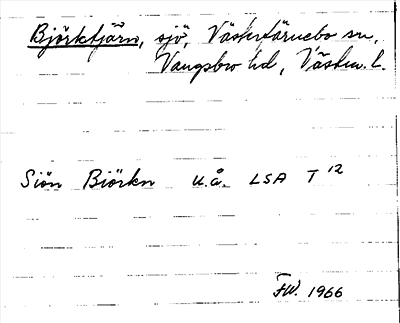 Björktjärn, sjö, Västerfärnebo sn,
Vangsbro hd, Västm. l.
Siön Biörkn u.å. LSA T 12
FW. 1966